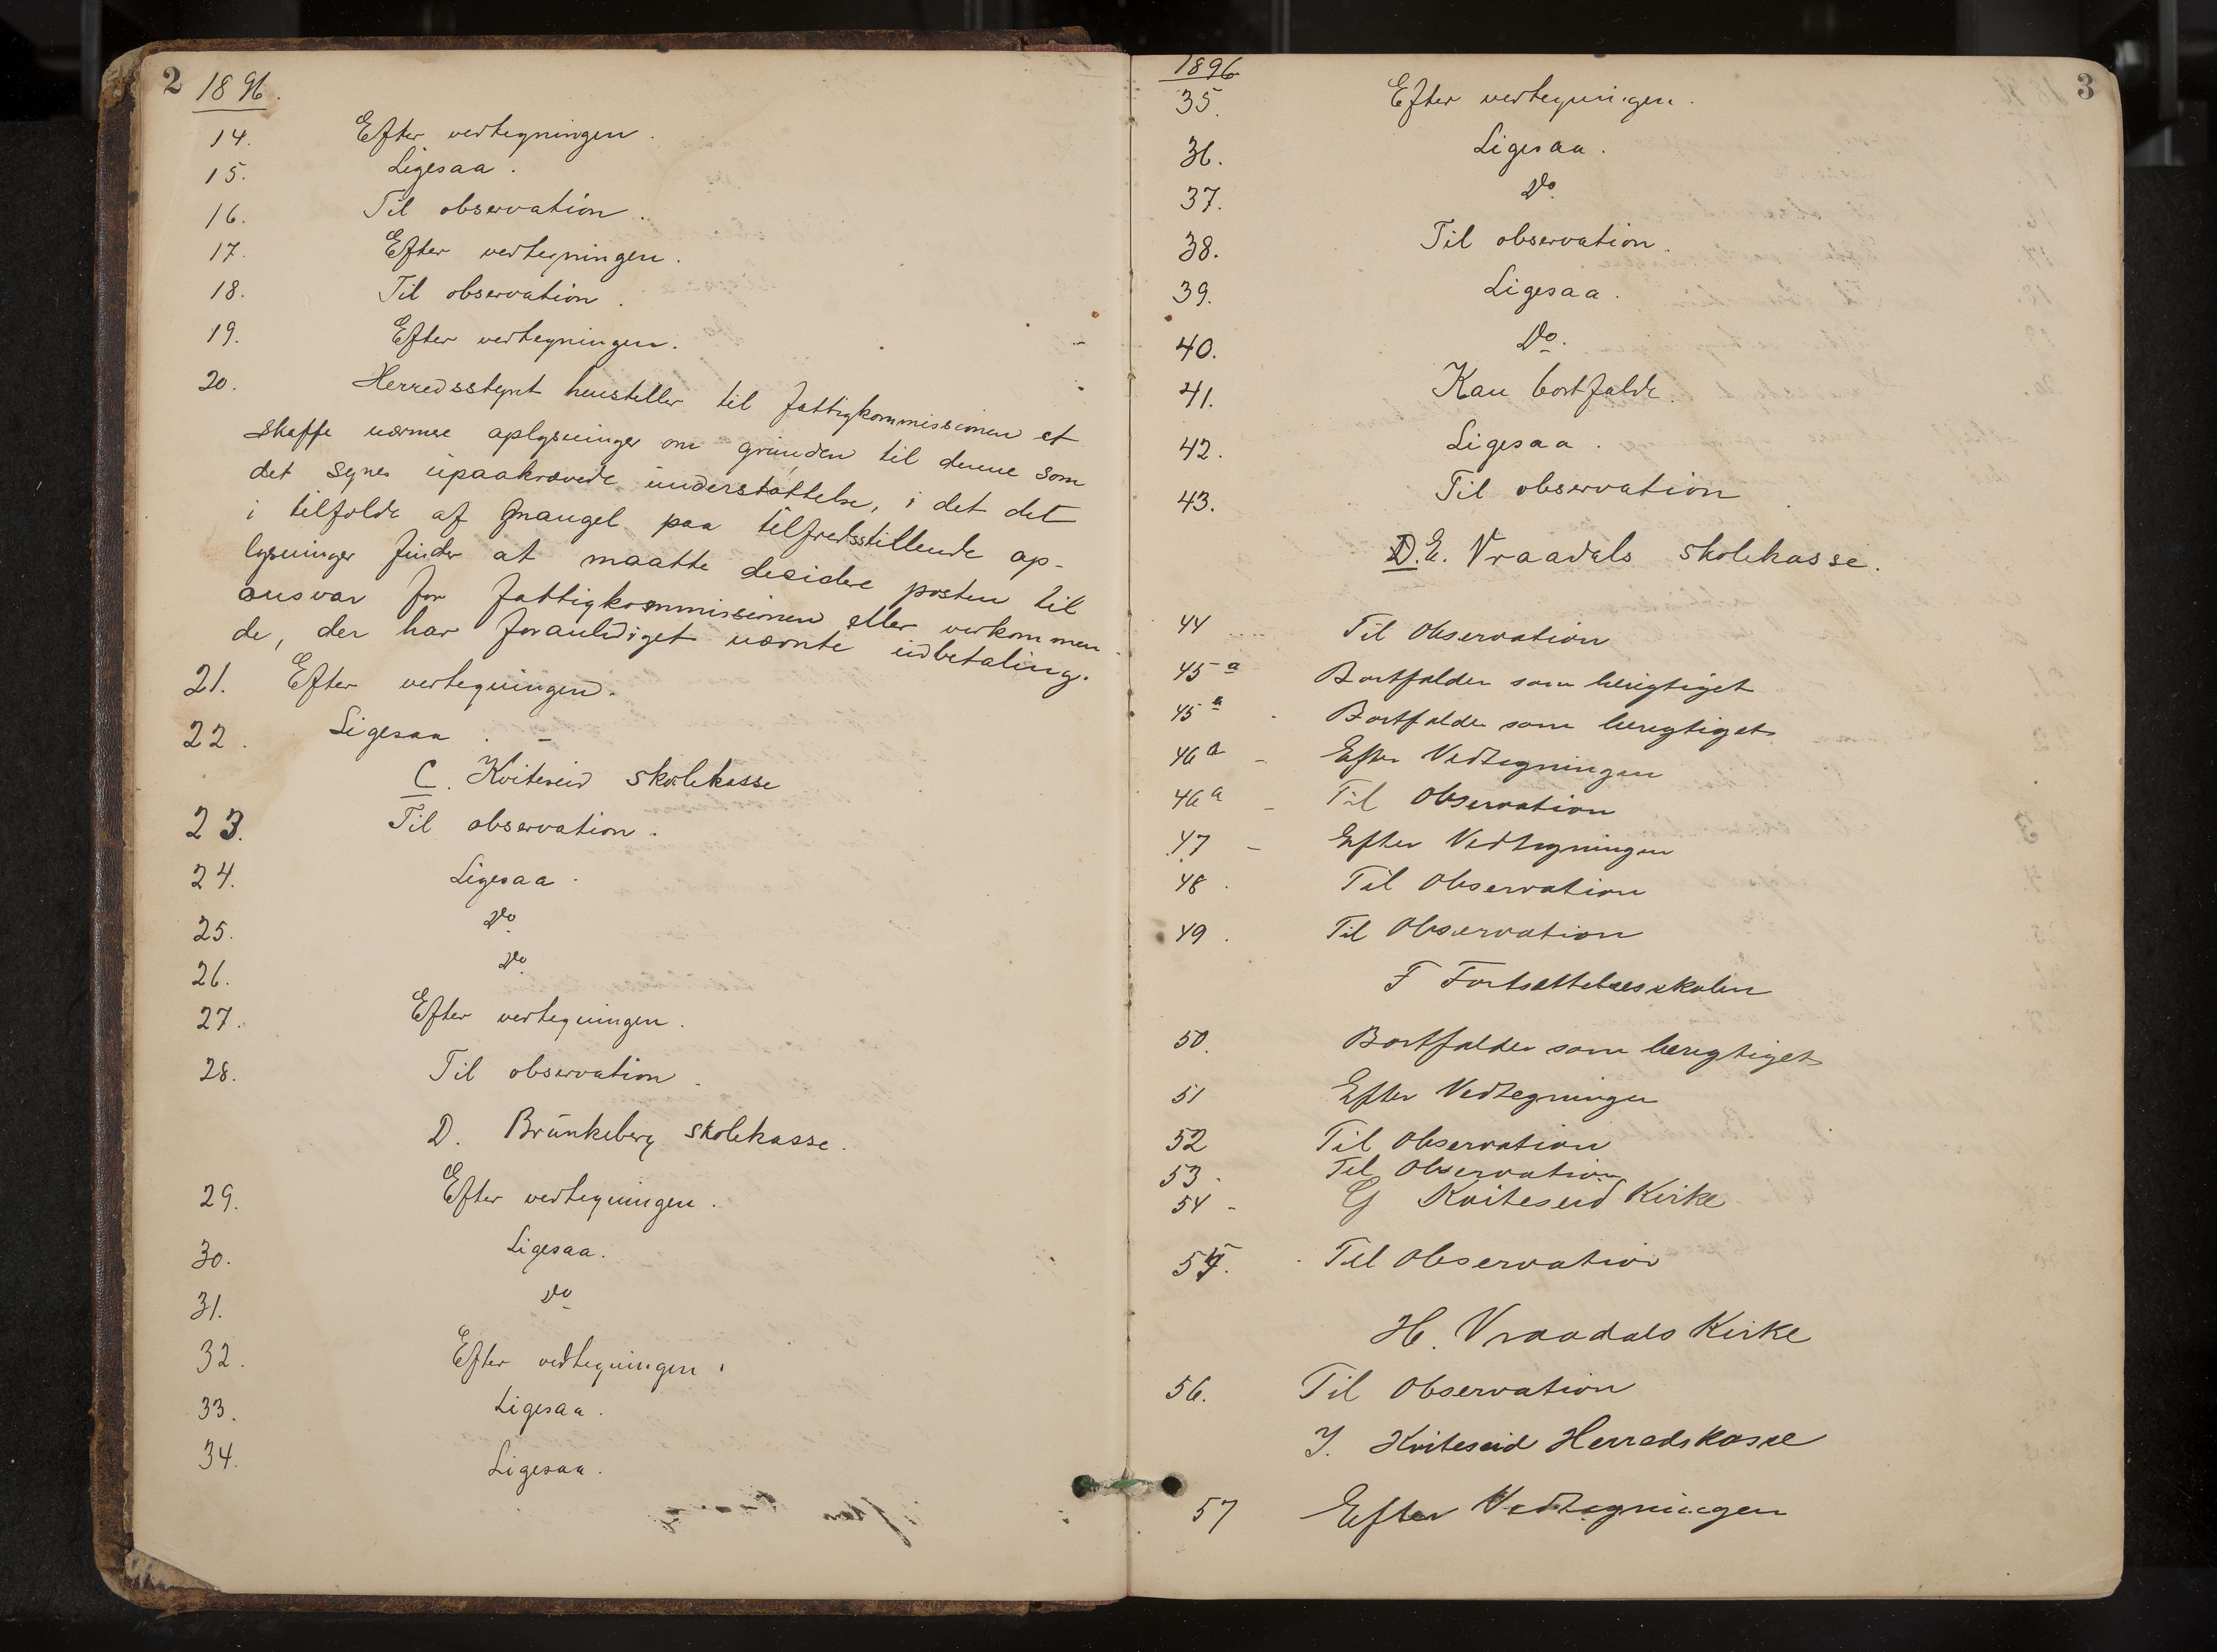 2
1896.
14. Efter vedtegningen.
15. Ligesaa.
16. Til observation.
17. Efter vedtegningen.
18. Til observation.
19. Efter vedtegningen.
20. Herredsstyret henstiller til fattigkommissionen at
skaffe nærmere oplysninger om grunden til denne som
det synes upaakrævede understøttelse, i det det
i tilfælde af mangel paa tilfredsstillende op-
lysninger finder at maatte desidere posten til
ansvar for fattigkommissionen eller vedkommen-
de, der har foranlediget nævnte udbetaling.
21. Efter vedtegningen.
22. Ligesaa. -
C. Kviteseid skolekasse
23. Til observation.
24. Ligesaa.
25. Do
26. Do
27. Efter vedtegningen.
28. Til observation.
D. Brunkeberg skolekasse.
29. Efter vedtegningen.
30. Ligesaa.
31. Do
32. Efter vedtegningen.
33. Ligesaa.
34. Ligesaa.
3
1896
35. Efter vedtegningen.
36. Ligesaa.
37. Do
38. Til observation.
39. Ligesaa.
40. Do.
41. Kan bortfalde.
42. Ligesaa.
43. Til observation
E. Vraadals skolekasse.
44 Til Observation
45 a Bortfalder som berigtiget
45 a Bortfalder som berigtiget
46 a - Efter Vedtegningen
46 a - Til Observation
47 - Efter Vedtegningen
48. Til Observation
49. Til Observation
F Fortsættelsesskolen
50. Bortfalder som berigtiget
51 Efter Vedtegningen
52 Til Observation
53. Til Observation
54 - G Kviteseid Kirke
55. Til Observation
H. Vraadals Kirke
56. Til Observation
I. Kviteseid Herredskasse
57 Efter Vedtegningen